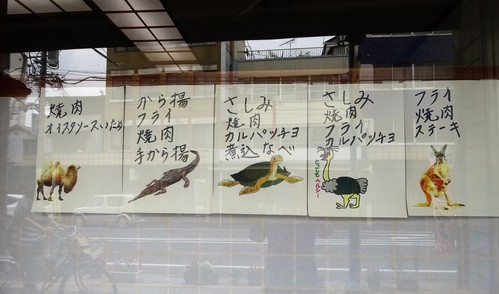 焼肉
オイスターソースいため
から揚
フライ
焼肉
手から揚
さしみ
焼肉
カルパッチョ
煮込なべ
さしみ
焼肉
フライ
カルパッチョ
フライ
焼肉
ステーキ